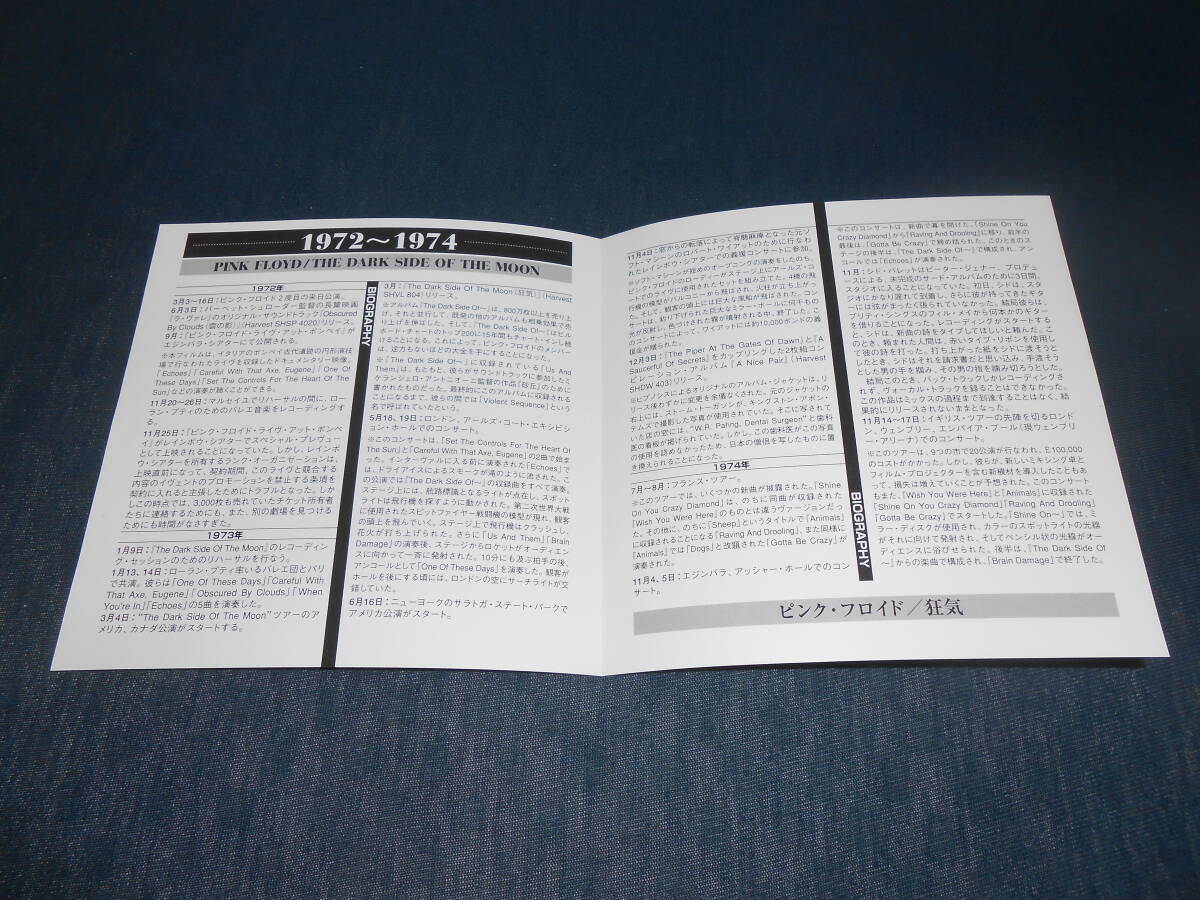 1972〜1974
PINK FLOYD/THE DARK SIDE OF THE MOON
1972年
3月3〜16日：ピンク・フロイド2度目の来日公演。
6月3日：バーベット・シュローダー監督の長篇映画
『ラ・ヴァレ』のオリジナル・サウンドトラック「Obscured
By Clouds（雲の影）」（Harvest SHSP 4020）リリース。
9月：『ピンク・フロイド・ライヴ・アット・ポンペイ』が
エジンバラ・シアターにて公開される。
※本フィルムは、イタリアのポンペイ古代遺跡の円形演技
場で行なわれたライヴを収録したドキュメンタリー映像。
「Echoes」「Careful With That Axe, Eugene」「One Of
These Days」「Set The Controls For The Heart Of The
Sun」などの演奏が聴くことができる。
11月20〜26日：マルセイユでリハーサルの間に、ロー
ラン・プティのためのバレエ音楽をレコーディングす
る。
11月25日：『ピンク・フロイド・ライヴ・アット・ポンペ
イ』がレインボウ・シアターでスペシャル・プレヴュー
として上映されることになっていた。しかし、レインボ
ウ・シアターを所有するランク・オーガニゼーションは、
上映直前になって、契約期間、このライヴと競合する
内容のイヴェントのプロモーションを禁止する条項を
契約に入れると主張したためにトラブルとなった。しか
しこの時点では、3,000枚も売れていたチケット所有者
たちに連絡するためにも、また、別の劇場を見つける
ためにも時間がなさすぎた。
1973年
1月9日：「The Dark Side Of The Moon」のレコーディン
グ・セッションのためのリハーサルを行なう。
1月13、14日：ローラン・プティ率いるバレエ団とパリ
で共演。彼らは「One Of These Days」「Careful With
That Axe, Eugene」「Obscured By Clouds」「When
You're In」「Echoes」の5曲を演奏した。
3月4日：“The Dark Side Of The Moon” ツアーのア
メリカ、カナダ公演がスタートする。
BIOGRAPHY
3月：「The Dark Side Of The Moon（狂気）」（Harvest
SHVL 804）リリース。
※アルバム「The Dark Side Of〜」は、800万枚以上を売り上
げ、それと並行して、既発の他のアルバムも相乗効果で売
り上げを伸ばした。そして、「The Dark Side Of〜」はビル
ボード・チャートのトップ200に15年間もチャート・インし続
けることになる。これによって、ピンク・フロイドのメンバー
は、途方もないほどの大金を手にすることになった。
※「The Dark Side Of〜」に収録されている「Us And
Them」は、もともと、彼らがサウンドトラックに参加したミ
ケランジェロ・アントニオーニ監督の作品『砂丘』のために
書かれたものだった。最終的にこのアルバムに収録される
ことになるまで、彼らの間では「Violent Sequence」という
名で呼ばれていたという。
5月18、19日：ロンドン、アールズ・コート・エキシビシ
ョン・ホールでのコンサート。
※このコンサートは、「Set The Controls For The Heart Of
The Sun」と「Careful With That Axe, Eugene」の2曲で始ま
った。インターヴァルに入る前に演奏された「Echoes」で
は、ドライアイスによるスモークが滝のように流された。こ
の公演では「The Dark Side Of〜」の収録曲をすべて演奏。
ステージ上には、航路標識となるライトが点在し、スポット
ライトは飛行機を探すように動かされた。第二次世界大戦
に使用されたスピットファイヤー戦闘機の模型が現れ、観客
の頭上を飛んでいく。ステージ上で飛行機はクラッシュし、
花火が打ち上げられた。さらに「Us And Them」「Brain
Damage」の演奏後、ステージからロケットがオーディエン
スに向かって一斉に発射された。10分にも及ぶ拍手の後、
アンコールとして「One Of These Days」を演奏した。観客が
ホールを後にする頃には、ロンドンの空にサーチライトが交
錯していた。
6月16日：ニューヨークのサラトガ・ステート・パークで
アメリカ公演がスタート。
11月4日：窓からの転落によって脊髄麻痺となった元ソ
フト・マシーンのロバート・ワイアットのために行なわ
れたレインボウ・シアターでの義援コンサートに参加。
※ソフト・マシーンが短めのオープニングの演奏をしたのち、
ピンク・フロイドのローディーがステージ上にアールズ・コ
ートでのライヴに使用されたセットを組み立てた。4機の飛
行機の模型がバルコニーから飛ばされ、火柱が立ち上がっ
た。そして、観客の頭上には巨大な風船が飛ばされた。コン
サートは、釣り下げられた巨大なミラー・ボールに何千もの
光が反射し、色づけされた霧が噴射される中、終了した。こ
のコンサートによって、ワイアットには約10,000ポンドの義
援金が贈られた。
12月3日：「The Piper At The Gates Of Dawn」と「A
Saucerful Of Secrets」をカップリングした2枚組コン
ピレーション・アルバム「A Nice Pair」（Harvest
SHDW 403）リリース。
※ヒプノシスによるオリジナルのアルバム・ジャケットは、リ
リース後わずかに変更を余儀なくされた。元のジャケットの
右上には、ストーム・トーガソンが、キングストン・アポン・
テムズで撮影した写真が使用されていた。そこに写されて
いた店の窓には、“W.R. Pahng, Dental Surgeon”と歯科
医の看板が掲げられていた。しかし、この歯科医がこの写真
の使用を認めなかったため、日本の僧侶を写したものに置
き換えられることになった。
1974年
7月〜8月：フランス・ツアー。
※このツアーでは、いくつかの新曲が披露された。「Shine
On You Crazy Diamond」は、のちに同曲が収録された
「Wish You Were Here」のものとは違うヴァージョンだっ
た。その他に、のちに「Sheep」というタイトルで「Animals」
に収録されることになる「Raving And Drooling」、また同様に
「Animals」では「Dogs」と改題された「Gotta Be Crazy」が
演奏された。
11月4、5日：エジンバラ、アッシャー・ホールでのコン
サート。
BIOGRAPHY
※このコンサートは、新曲で幕を開けた。「Shine On You
Crazy Diamond」から「Raving And Drooling」に移り、前半の
最後は、「Gotta Be Crazy」で締め括られた。このときのス
テージの後半は、「The Dark Side Of〜」で構成され、アン
コールでは「Echoes」が演奏された。
11月：シド・バレットはピーター・ジェナー、プロデュ
ースによる、未完成のサード・アルバムのために3日間、
スタジオに入ることになっていた。初日、シドは、スタ
ジオにかなり遅れて到着し、さらに彼が持ってきたギタ
ーには弦がまったく張られていなかった。結局彼らは、
プリティ・シングスのフィル・メイから何本かのギター
を借りることになった。レコーディングがスタートする
と、シドは、新曲の詩をタイプしてほしいと頼んだ。こ
のとき、頼まれた人間は、赤いタイプ・リボンを使用し
て彼の詩を打った。打ち上がった紙をシドに渡そうと
したとき、シドはそれを請求書だと思い込み、手渡そう
とした男の手を掴み、その男の指を噛み切ろうとした。
結局このとき、バック・トラックしかレコーディングさ
れず、ヴォーカル・トラックを録ることはできなかった。
この作品はミックスの過程まで到達することはなく、結
果的にリリースされないままとなった。
11月14〜17日：イギリス・ツアーの先陣を切るロンド
ン、ウェンブリー、エンパイア・プール（現ウェンブリ
ー・アリーナ）でのコンサート。
※このツアーは、9つの市で20公演が行なわれ、£100,000
のコストがかかった。しかし、彼らが、新しいミキシング卓と
フィルム・プロジェクターを含む新機材を導入したこともあ
って、損失は増えていくことが予想された。このコンサート
もまた、「Wish You Were Here」と「Animals」に収録された
「Shine On You Crazy Diamond」「Raving And Drooling」
「Gotta Be Crazy」でスタートした。「Shine On〜」では、ミ
ラー・ディスクが使用され、カラーのスポットライトの光線
がそれに向けて発射され、そしてペンシル状の光線がオー
ディエンスに浴びせられた。後半は、「The Dark Side Of
〜」からの楽曲で構成され、「Brain Damage」で終了した。
ピンク・フロイド／狂気